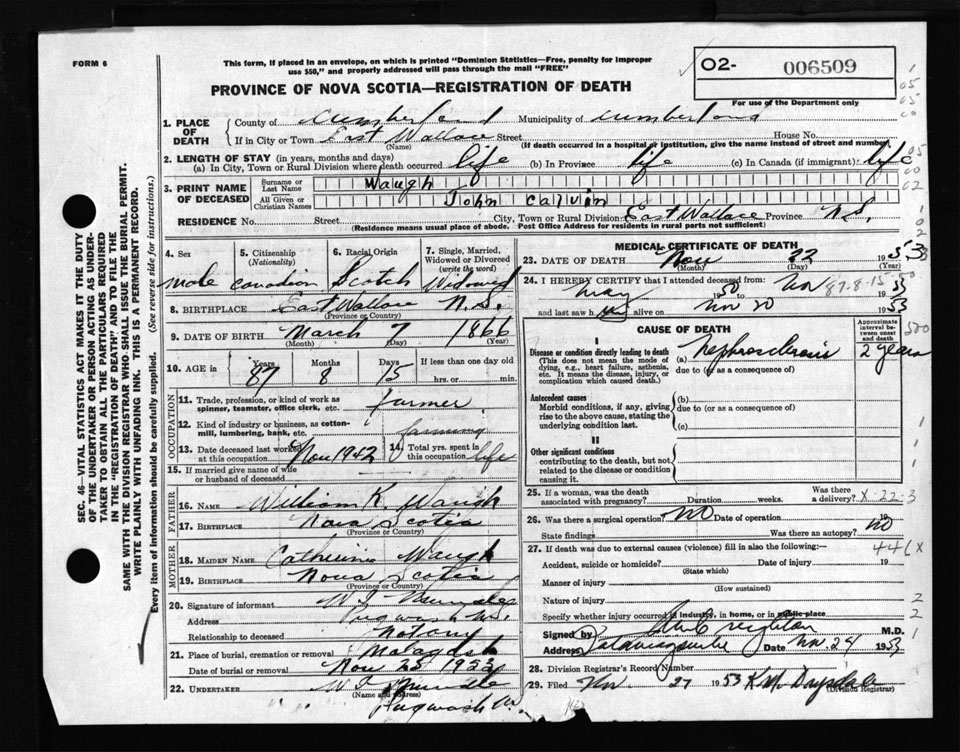 FORM 6
This form, if placed in an envelope, on which is printed "Dominion Statistics—Free, penalty for improper
use $50," and properly addressed will pass through the mail "FREE"
PROVINCE OF NOVA SCOTIA—REGISTRATION OF DEATH
O2- 006509
For use of the Department only
SEC. 46—VITAL STATISTICS ACT MAKES IT THE DUTY
OF THE UNDERTAKER OR PERSON ACTING AS UNDER-
TAKER TO OBTAIN ALL THE PARTICULARS REQUIRED
IN THE "REGISTRATION OF DEATH" AND TO FILE THE
SAME WITH THE DIVISION REGISTRAR WHO SHALL ISSUE THE BURIAL PERMIT.
WRITE PLAINLY WITH UNFADING INK. THIS IS A PERMANENT RECORD.
Every item of information should be carefully supplied. (See reverse side for instructions.)
1. PLACE OF DEATH
County of Cumberland Municipality of Cumberland
If in City or Town East Wallace Street House No.
(Name) (If death occurred in a hospital or institution, give the name instead of street and number)
2. LENGTH OF STAY (in years, months and days)
(a) In City, Town or Rural Division where death occurred life (b) In Province life (c) In Canada (if immigrant) life
3. PRINT NAME OF DECEASED
Surname or Last Name Waugh
All Given or Christian Names John Calvin
RESIDENCE No. Street City, Town or Rural Division East Wallace Province N.S.
(Residence means usual place of abode. Post Office Address for residents in rural parts not sufficient)
4. Sex male
5. Citizenship (Nationality) Canadian
6. Racial Origin Scotch
7. Single, Married, Widowed or Divorced (write the word) Widowed
8. BIRTHPLACE East Wallace N.S.
(Province or Country)
9. DATE OF BIRTH March 7 1866
(Month) (Day) (Year)
10. AGE in Years 87 Months 8 Days 15 If less than one day old
hrs. or min.
OCCUPATION
11. Trade, profession, or kind of work as
spinner, teamster, office clerk, etc. farmer
12. Kind of industry or business, as cotton-
mill, lumbering, bank, etc. farming
13. Date deceased last worked at this occupation Nov 1942
14. Total yrs. spent in this occupation life
15. If married give name of wife
or husband of deceased
FATHER
16. NAME William K. Waugh
17. BIRTHPLACE Nova Scotia
(Province or Country)
MOTHER
18. MAIDEN NAME Catherine Waugh
19. BIRTHPLACE Nova Scotia
(Province or Country)
20. Signature of informant
Address Pugwash N.S.
Relationship to deceased Notary
21. Place of burial, cremation or removal Malagash
Date of burial or removal Nov 25 1953
22. UNDERTAKER
(Name and address)
Pugwash N.S.
MEDICAL CERTIFICATE OF DEATH
23. DATE OF DEATH Nov 22 1953
(Month) (Day) (Year)
24. I HEREBY CERTIFY that I attended deceased from
May 1950 to Nov 87-8-15 1953
and last saw h alive on Nov 20 1953
CAUSE OF DEATH
Approximate interval between onset and death
I
Disease or condition directly leading to death
(This does not mean the mode of
dying, e.g., heart failure, asthenia,
etc. It means the disease, injury, or
complication which caused death.)
(a) Nephrosclerosis 2 years
due to (or as a consequence of)
Antecedent causes
Morbid conditions, if any, giving
rise to the above cause, stating the
underlying condition last.
(b)
due to (or as a consequence of)
(c)
II
Other significant conditions
contributing to the death, but not
related to the disease or condition
causing it.
25. If a woman, was the death
associated with pregnancy? Duration weeks. Was there a delivery? x 22-3
26. Was there a surgical operation? NO Date of operation 19
State findings Was there an autopsy? NO
27. If death was due to external causes (violence) fill in also the following:— 446x
Accident, suicide or homicide? Date of injury 19
(State which)
Manner of injury
(How sustained)
Nature of injury
Specify whether injury occurred in industry, in home, or in public place
Signed by Creighton M.D.
Address Tatamagouche Date Nov 24 1953
28. Division Registrar's Record Number
29. Filed Nov 27 1953 K.M. Drysdale
(Division Registrar)